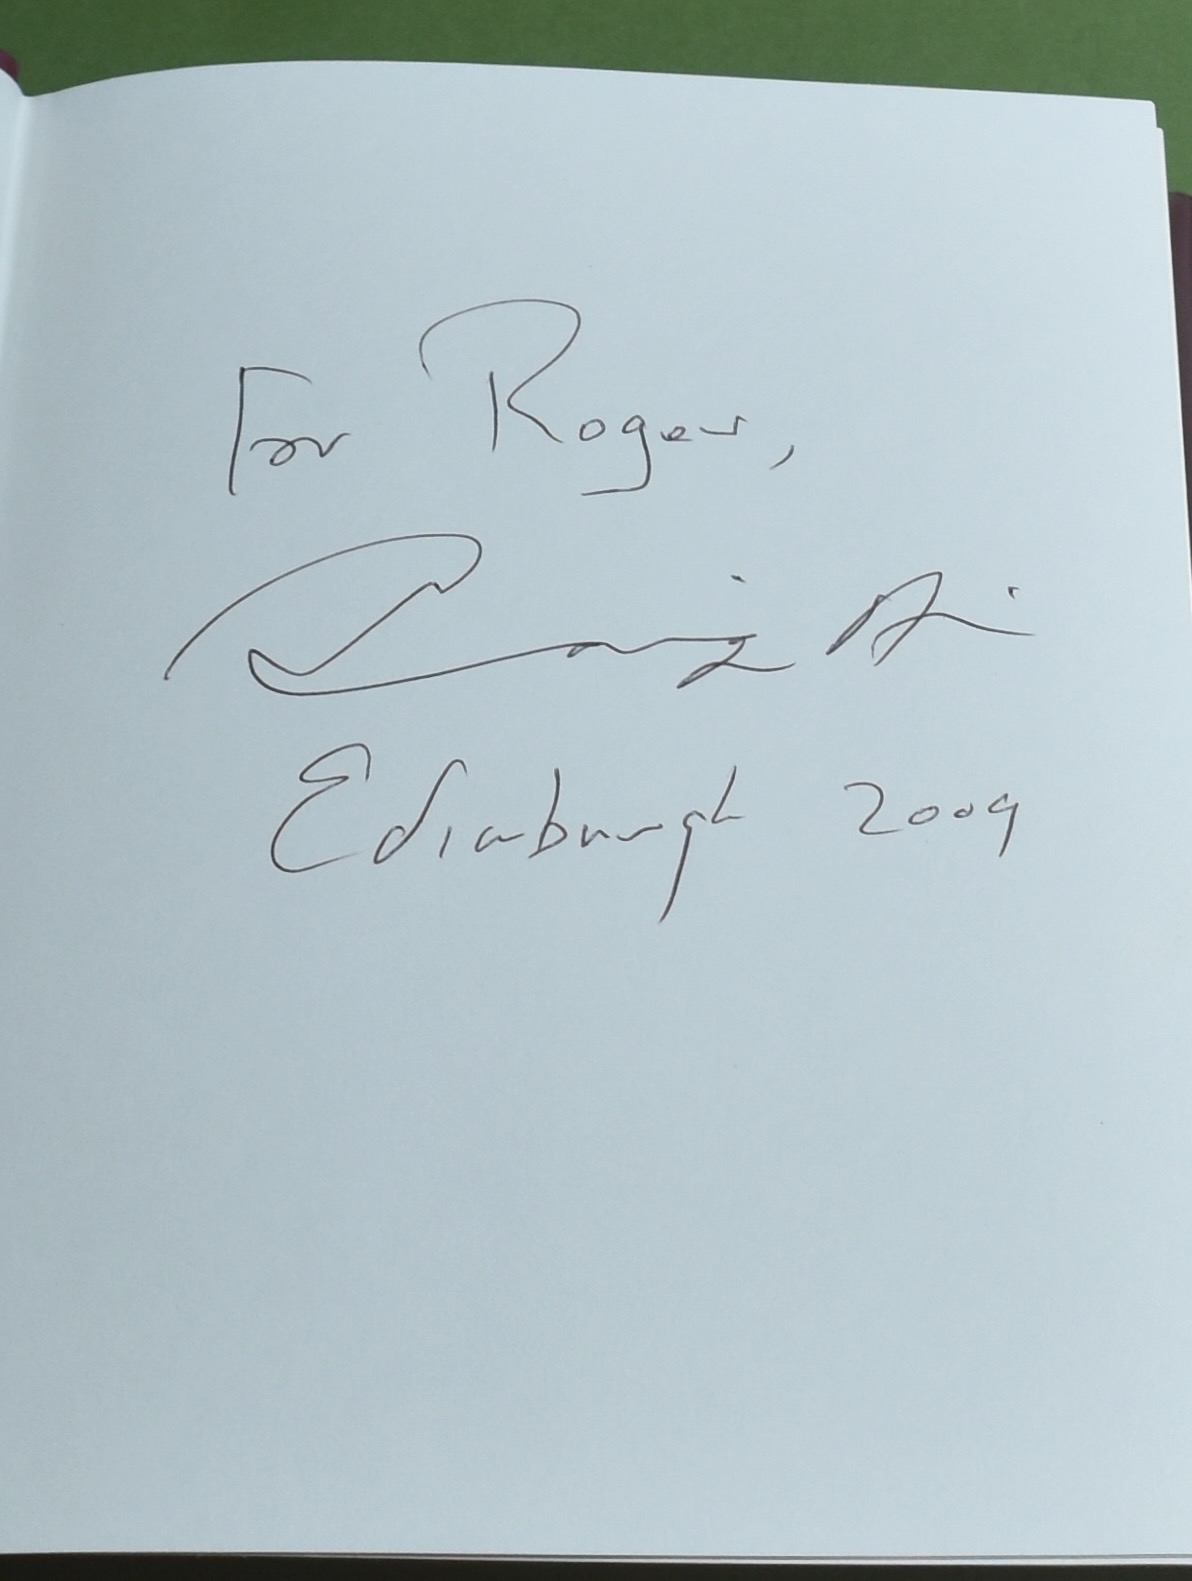 For Roger,
Edinburgh 2009